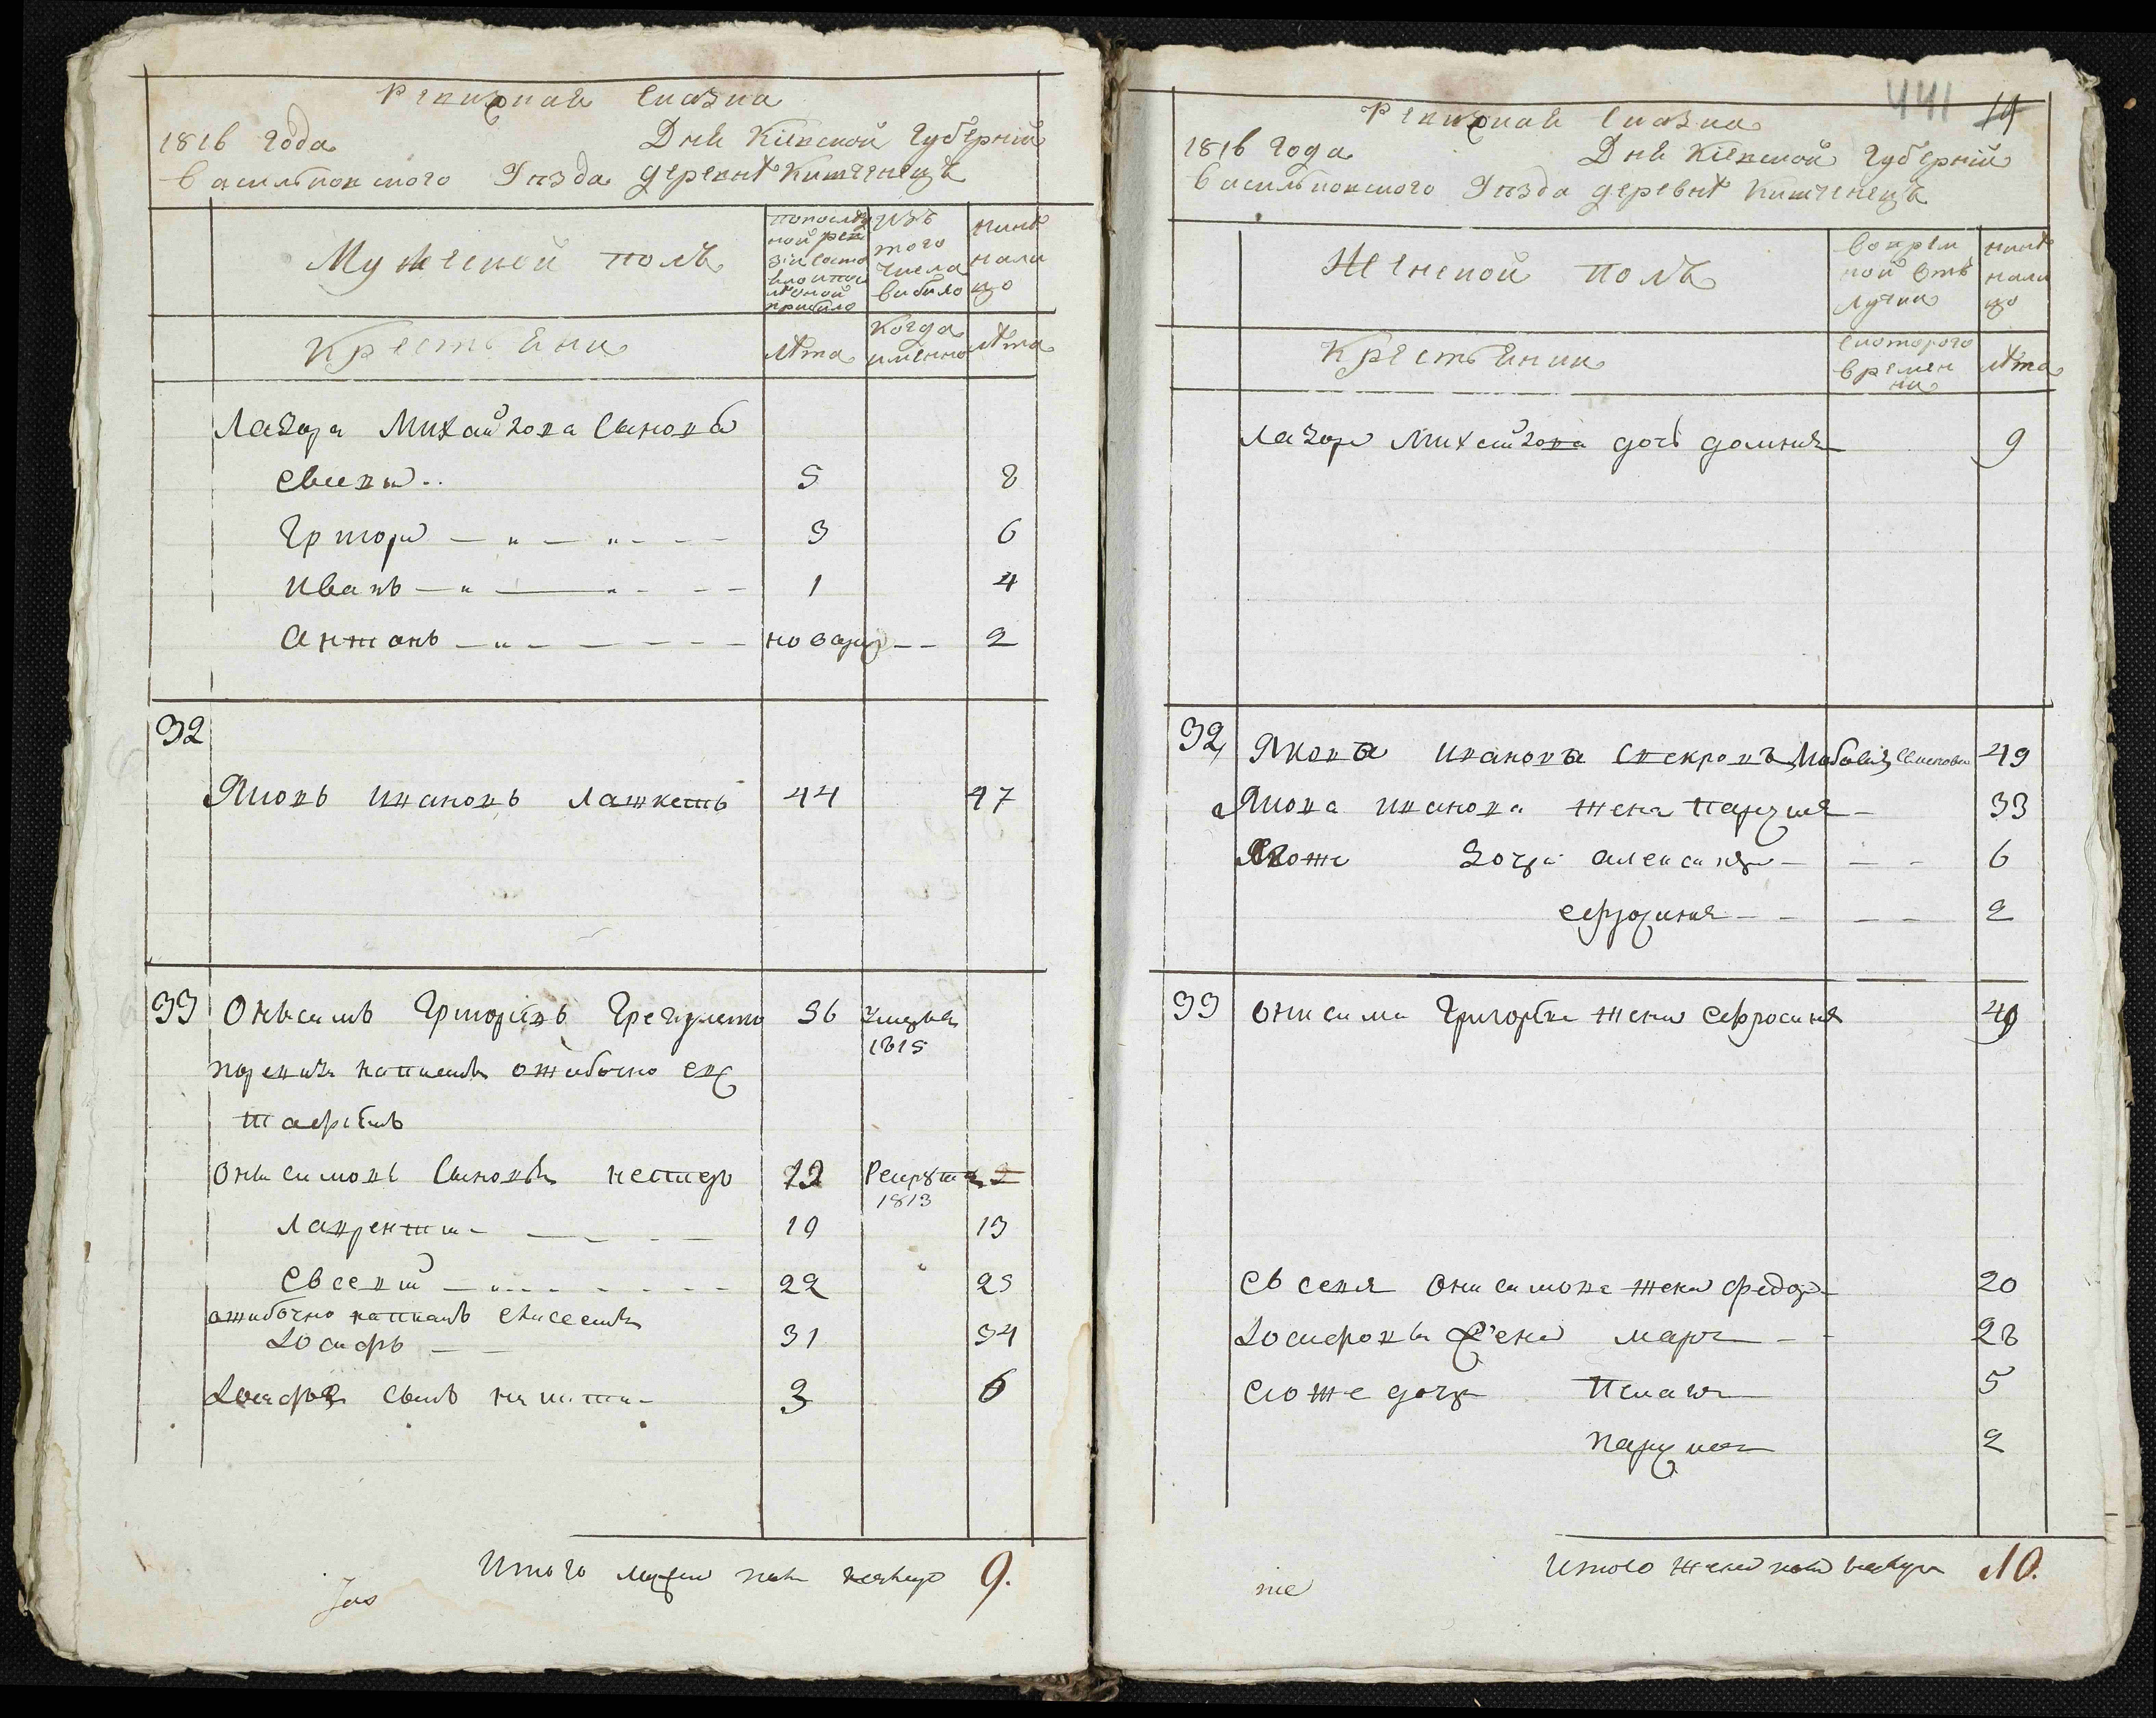 Ревизная сказка
1816 года Дня Кіевской Губерніи
васильковского Уезда деревне Китченецъ
Мужеской полъ
по послед
ной реви
зіи состо
яло и после
оной
прибило
изъ
того
числа
вибило
нине
нали
цо
Крестьяни
лета
когда
именно
лета
Лазара Михайлова Сыновя
Евсевий
5
8
Григори
3
6
Иванъ
1
4
Антонъ
новорож
2
32
Яковъ Ивановъ Лашкетъ
44
47
33
Онисимъ Григорьевъ
36
1815
поревизи написанъ ошибочно
Онисимовъ Сыновья нестеръ
12
Рекрута
1813
Лаврентий
10
13
Евсевий
22
25
ошибочно написанъ
Іосифъ
31
34
Іосифа Сынъ никита
3
6
Итого мужеска пола налицо 9.
441
19
Ревизная сказка
1816 года Дня Кіевской Губерніи
васильковского Уезда деревне Китченецъ
Женской полъ
во времен
ной отъ
лучки
нине
нали
цо
Крестьянки
с которого
времен
ни
лета
Лазара Михайлова дочь домния
9
32
Якова Иванова
49
Якова Иванова жена параския
33
Якова дочери александра
6
ефросиния
2
33
Онисима Григорьева жена Ефросиния
49
Евсевия Онисимова жена федора
20
Іосифова жена мария
28
его же дочери Пелагия
5
параския
2
Итого женска пола налицо 10.